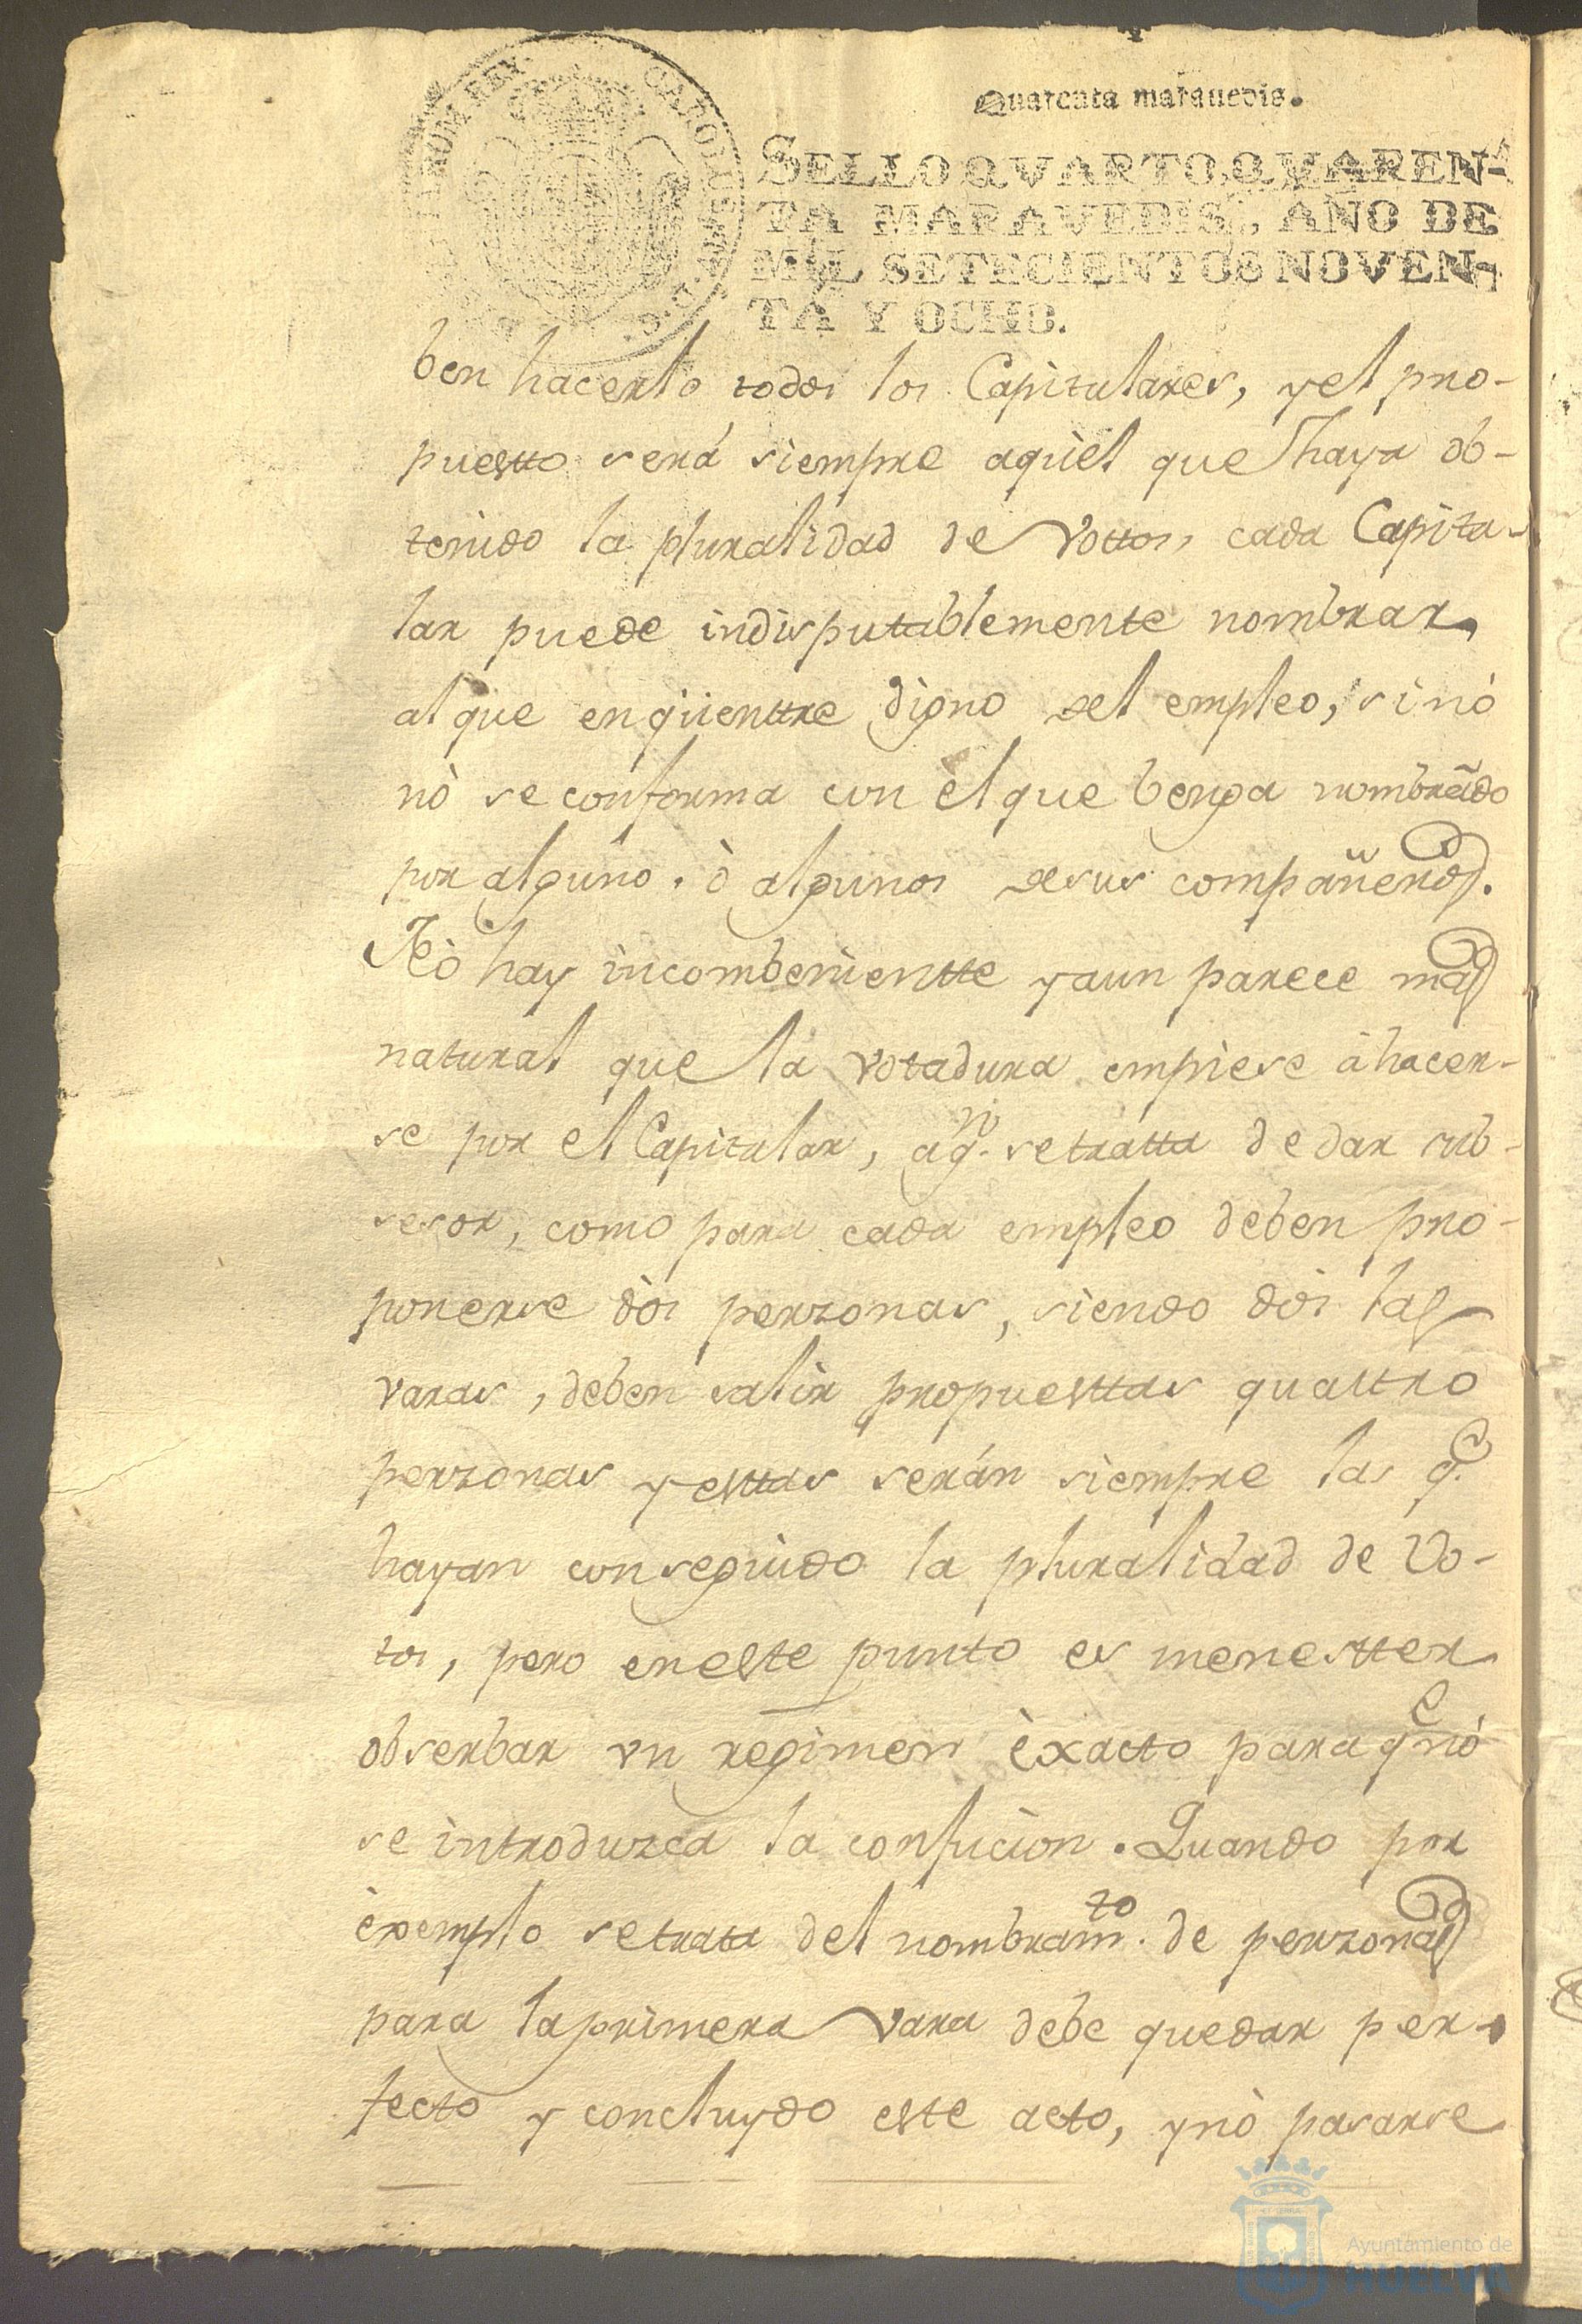 Quarenta marauedis.
SELLO QVARTO, QVAREN-
TA MARAVEDIS, AÑO DE
MIL SETECIENTOS NOVEN-
TA Y OCHO.
ben hacerlo todos los Capitulares, y el pro-
puestto será siempre aquèl que haya ob-
tenido la pluralidad de Vottos, cada Capitu-
lar puede indisputablemente nombrar
al que enqüenttre digno del empleo, si nó
nò se conforma con èl que benga nombrãdo
por alguno, ò algunos de sus compañeros.
Nò hay incombenientte y aun parece mas
natural que la votadura empiese à hacer-
se por el Capitular, a qn. se tratta de dar sub-
sesor, como para cada empleo deben pro-
ponerse dòs perzonas, siendo dòs las
varas, deben salir propuesttas quattro
perzonas y esttas serán siempre las qe.
hayan conseguido la pluralidad de Vo-
tos, pero en este punto es menestter
obserbar vn regimen èxacto para qe nó
se introduzca la confucion. Quando por
èxemplo se trata del nombramto. de perzonas
para la primera vara debe quedar per-
fecto y concluydo este acto, y nò pasarse
Ayuntamiento de
HUELVA